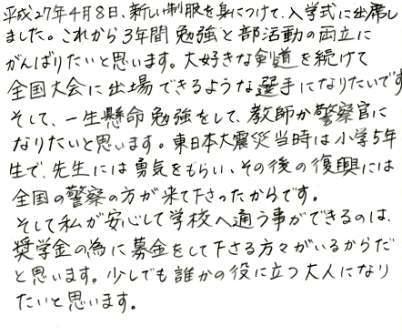 平成27年4月8日、新しい制服を身につけて、入学式に出席し
ました。これから3年間勉強と部活動の両立に
がんばりたいと思います。大好きな剣道を続けて
全国大会に出場できるような選手になりたいです
そして、一生懸命勉強をして、教師か警察官に
なりたいと思います。東日本大震災当時は小学5年
生で、先生には勇気をもらい、その後の復興には
全国の警察の方が来て下さったからです。
そして私が安心して学校へ通う事ができるのは、
奨学金の為に募金をして下さる方々がいるからだ
と思います。少しでも誰かの役に立つ大人になり
たいと思います。